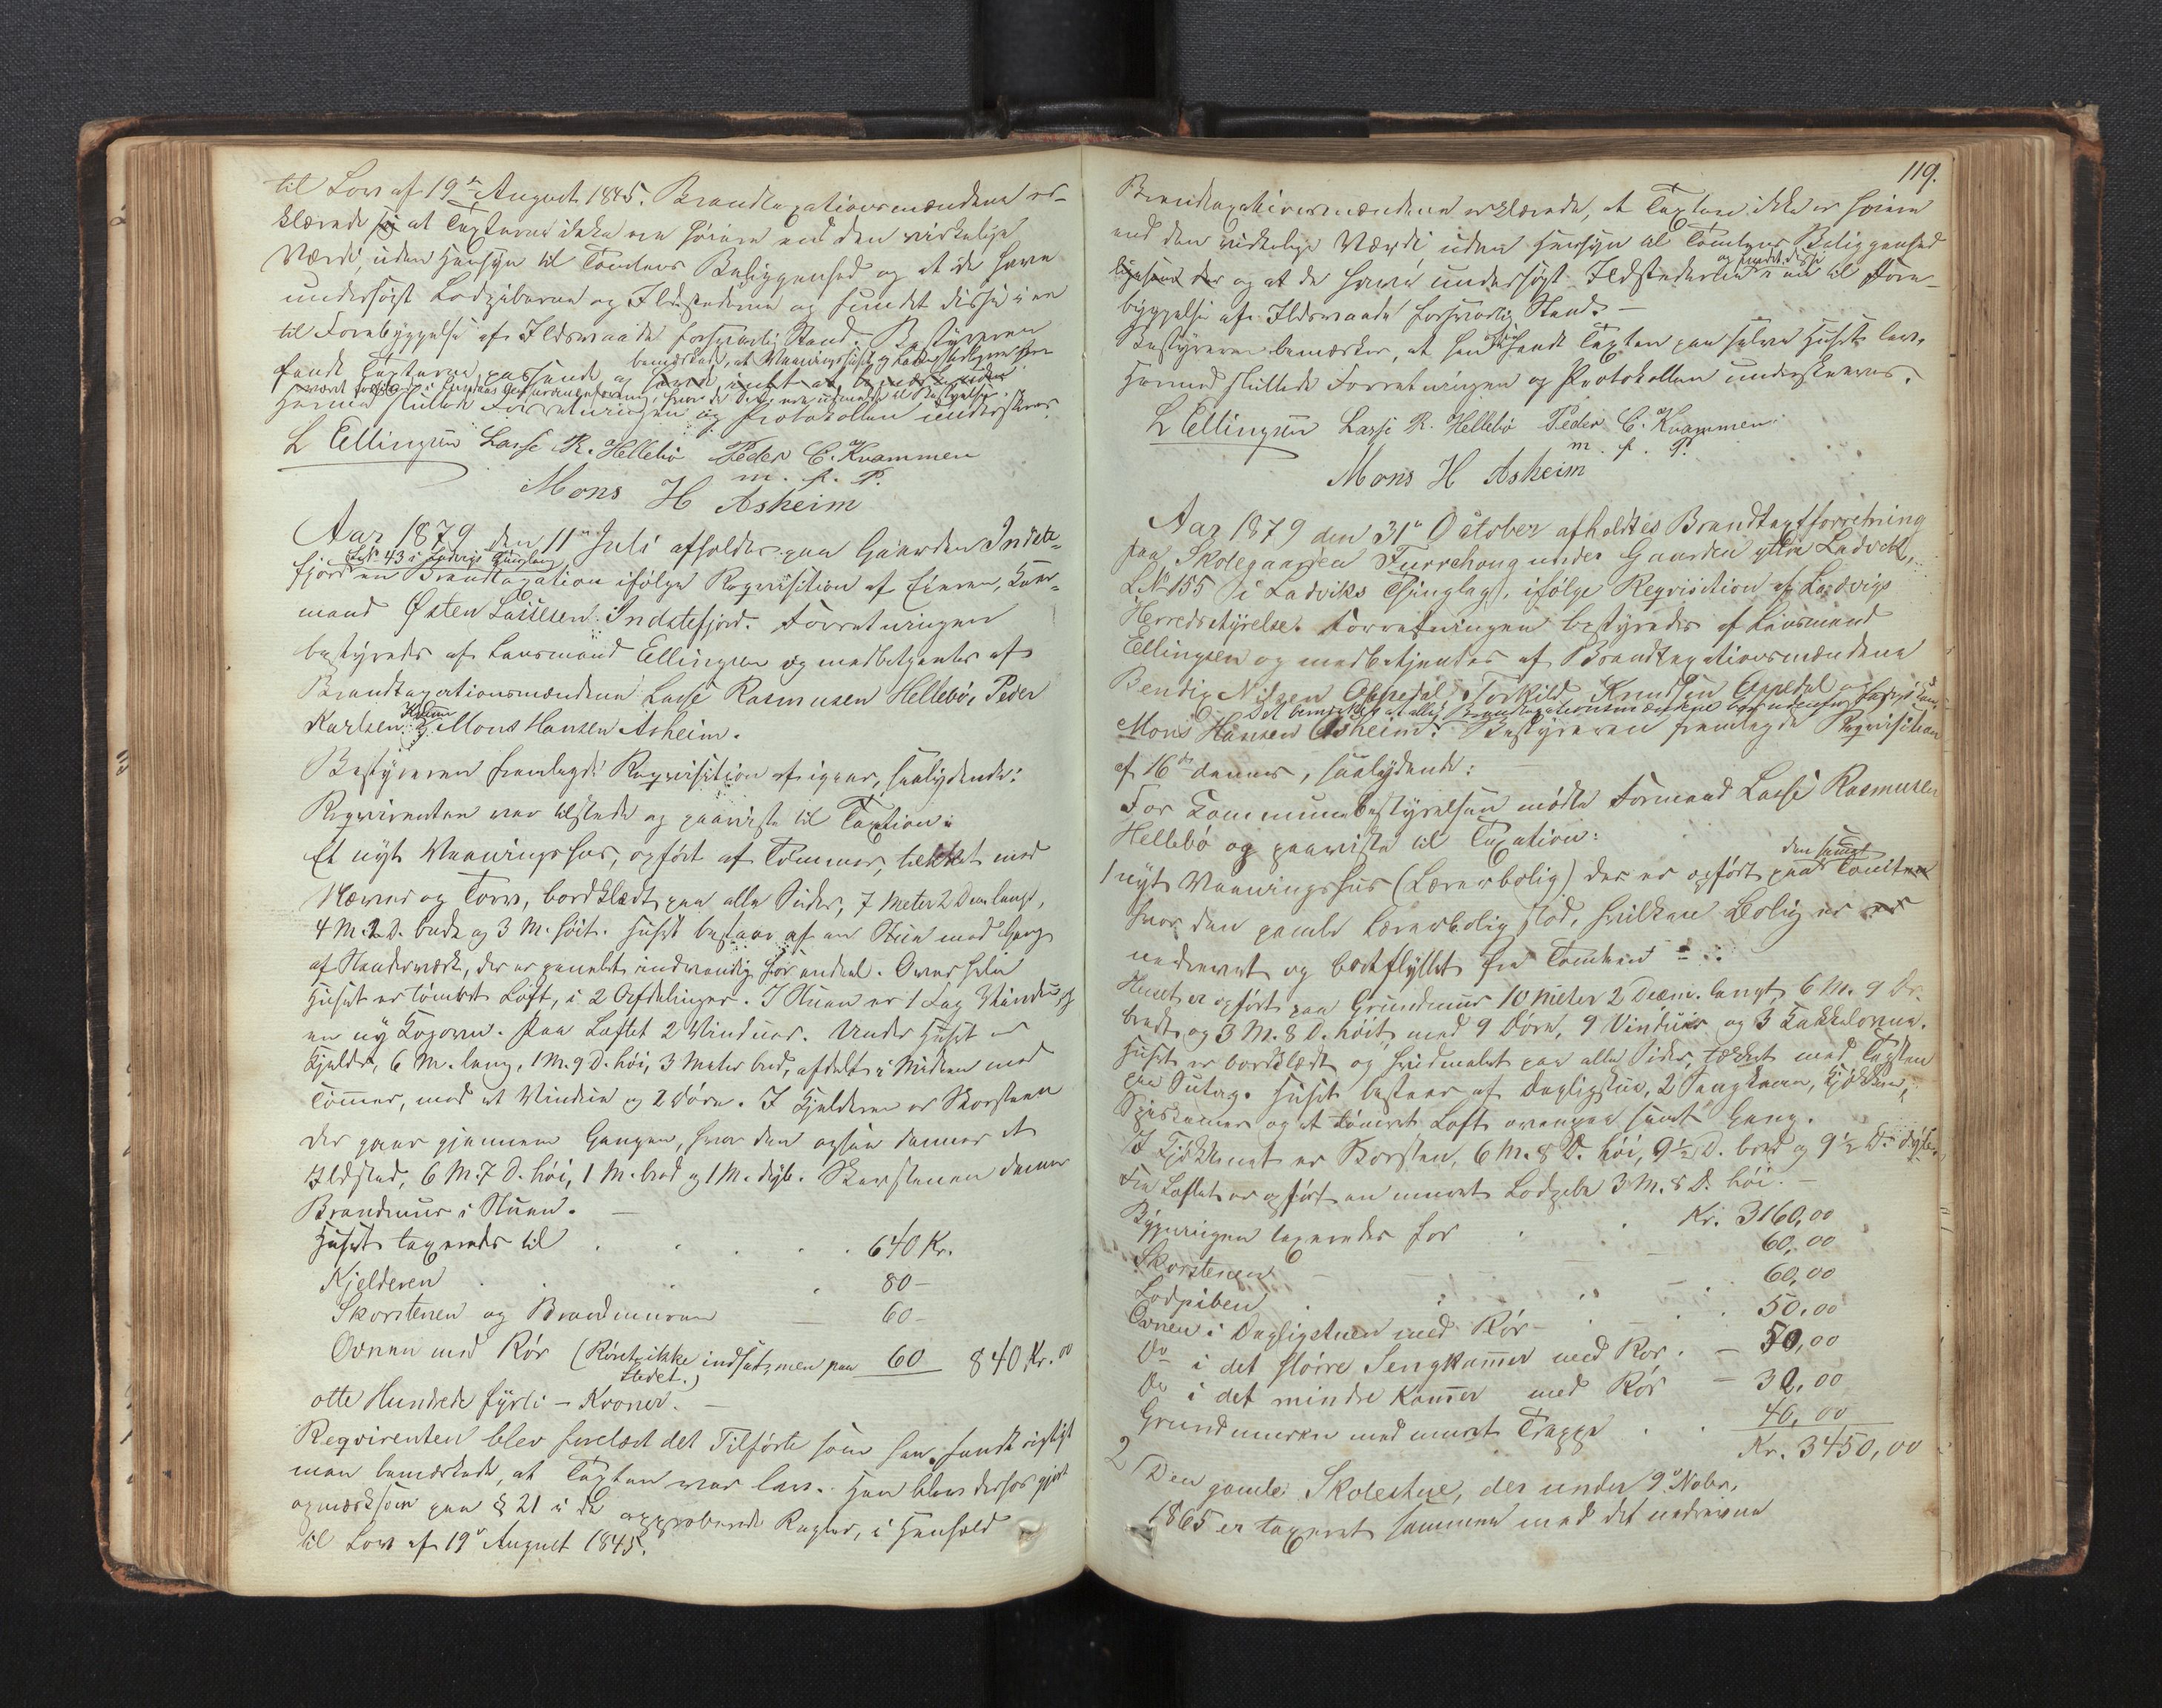 til Lov af 19de August 1845. Brandtaxationsmændene er-
klærede at Taxterne ikke ere høiere end den virkelige
Værdi, uden Hensyn til Tomtens Beliggenhed og at de have
undersøgt Lodpiberne og Ildstederne og fundet disse i en
til Forebyggelse af Ildsvaade forsvarlig Stand. Bestyreren
bemærkede, at Vaaningshuset og
fandt Taxterne passende og havde intet at bemærke
været
Hermed sluttede Forretningen og Protokollen underskreves
L Ellingsen Lasse R. Hellebø Peder C. Kvammen
m. f. P.
Mons H Asheim
Aar 1879 den 11te Juli afholdes paa Gaarden Indste-
LNo 43 i Ladvigs Thinglag
fjord en Brandtaxation ifølge Reqvisition af Eieren, Gaar-
mand Østen Lassesen Indstefjord. Forretningen
bestyredes af Lensmand Ellingsen og medbetjentes af
Brandtaxationsmændene Lasse Rasmusen Hellebø, Peder
Karlsen Kvammen og Mons Hansen Asheim.
Bestyreren fremlagde Reqvisition af igaar, saalydende:
Reqvirenten var tilstede og paaviste til Taxtion:
Et nyt Vaaningshus, opført af Tømmer, tækket med
Næver og Torv, bordklædt paa alle Sider, 7 Meter 2 Dem langt,
4 M. 2 D. bredt og 3 M. høit. Huset bestaar af en Stue med Gang
af Standerværk, der er panelet indvendig for endeel. Over hele
Huset er tømret Loft, i 2 Afdelinger. I Stuen er 1 Fag Vinduer og
en ny Kogovn. Paa Loftet 2 Vinduer. Under Huset er
Kjelder, 6 M. lang, 1 M. 9 D. høi, 3 Meter bred, afdelt i Midten med
Tømmer, med et Vindue og 2 Døre. I Kjelderen er Skorsteen
der gaar gjennem Gangen, hvor den ogsaa danner et
Ildsted, 6 M. 7 D. høi, 1 M. bred og 1 M. dyb. Skorstenen danner
Brandmuur i Stuen. —
Huset taxeredes til . . . . . 640 Kr.
Kjelderen . . . 80 –
Skorstenen og Brandmuren — 60 –
Ovnen med Rør (Røret ikke indsat, men paa 60 840 Kr. 00
Stedet.)
otte Hundrede fyrti – Kroner. —
Reqvirenten blev forelæst det Tilførte som han fandt rigtigt
men bemærkede, at Taxten var lav. Han blev derfor gjort
opmærksom paa § 21 i de approberede Regler, i Henhold
til Lov af 19de August 1845.
119.
Brandtaxationsmændene erklærede, at Taxten ikke er høiere
end den virkelige Værdi uden Hensyn til Tomtens Beliggenhed
og fundet disse
og at de have undersøgt Ildstederne i en til Fore-
byggelse af Ildsvaade forsvarlig Stand. —
Bestyreren bemærker, at han fandt Taxten paa selve Huset lav.
Hermed sluttede Forretningen og Protokollen underskreves.
L Ellingsen Lasse R. Hellebø Peder C. Kvammen
m. f. P.
Mons H Asheim
Aar 1879 den 31te October afholdtes Brandtaxtforretning
paa Skolegaarden Furrehoug under Gaarden ytre Ladvik,
LNo 155 i Ladviks Thinglag, ifølge Reqvisition af Ladvigs
Herredsstyrelse. Forretningen bestyredes af Lensmand
Ellingsen og medbetjentes af Brandtaxationsmændene
Bendix Nilsen Appedal, Torkild Knudsen Appedal og
Det bemærkes at alle Brandtaxationsmændene
Mons Hansen Asheim. Bestyreren fremlagde Reqvisition
af 16de dennes, saalydende:
For Kommunebestyrelsen mødte Formand Lasse Rasmusen
Hellebø og paaviste til Taxation:
den samme
1 nyt Vaaningshus (Lærerbolig) der er opført paa Tomt
hvor den gamle Lærerbolig stod, hvilken Bolig er
nedrevet og bortflyttet fra Tomten
Huset er opført paa Grundmuur 10 Meter 2 Decim. langt, 6 M. 9 D.
bredt og 3 M. 8 D. høit, med 9 Døre, 9 Vinduer og 3 Kakkelovne.
Huset er bordklædt og hvidmalet paa alle Sider, tækket med Tagsten
paa Sutag. Huset bestaar af Dagligstue, 2 Sengkamre, Kjøkken,
Spiskamer og et tømret Loft ovenpaa samt Gang.
I Kjøkkenet er Skorsten, 6 M. 8 D. høi, 9½ D. bred og 9½ D. dyb.
Fra Loftet er opført en muret Lodpibe 3 M. 8 D. høi. —
Bygningen taxeredes for . . Kr. 3160,00
Skorstenen — — — 60,00
Lodpiben . . . . 60,00
Ovnen i Dagligstuen med Rør . . 50,00
Do i det større Sengkamer med Rør . — 50,00
Do i det mindre Kamer med Rør — 30,00
Grundmuren med muret Trappe . . 40,00
Kr. 3450,00
2 Den gamle Skolestue, der under 9de Nobr.
1865 er taxeret sammen med det nedrevne